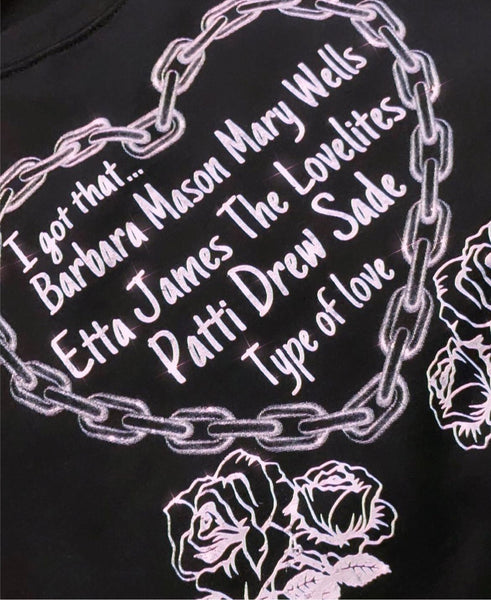 I got that...
Barbara Mason Mary Wells
Etta James The Lovelites
Patti Drew Sade
Type of love